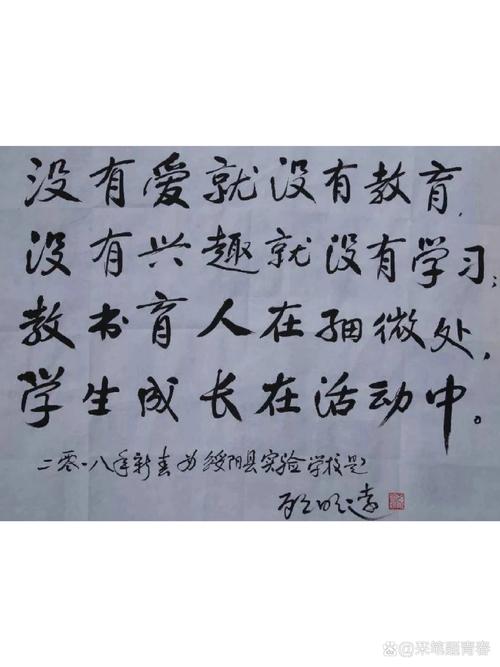 没有爱就没有教育，
没有兴趣就没有学习；
教书育人在细微处，
学生成长在活动中。
二零一八年新春为绥阳县实验学校题
顾明远